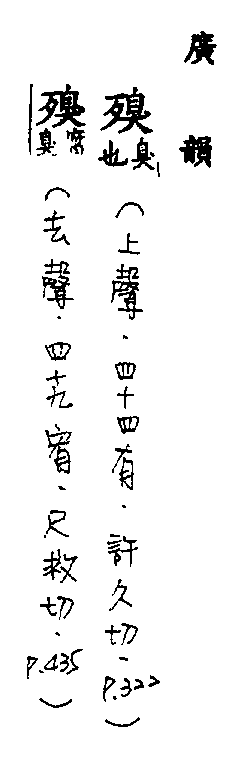 廣韻
殠臭也（上聲．四十四有．許久切．P.322）
殠腐臭（去聲．四十九宥．尺救切．P.435）